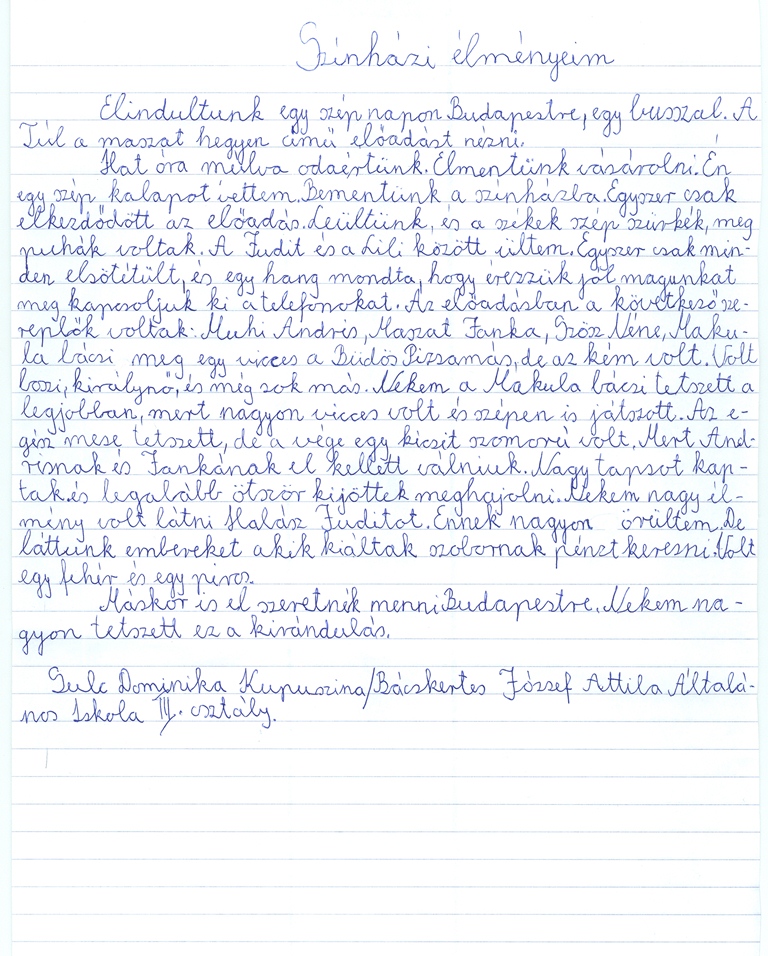 Színházi élményeim
Elindultunk egy szép napon Budapestre, egy busszal. A
Túl a maszat hegyen című előadást nézni.
Hat óra múlva odaértünk. Elmentünk vásárolni. Én
egy szép kalapot vettem. Bementünk a színházba. Egyszer csak
elkezdődött az előadás. Leültünk, és a székek szép szürkék, meg
puchák voltak. A Judit és a Lili között ültem. Egyszer csak min-
den elsötitült, és egy hang mondta, hogy érezzük jól magunkat
meg kapcsoljuk ki a telefonokat. Az előadásban a következő sze-
replők voltak: Muhi Andris, Maszat Janka, Szösz Néne, Maku-
la bácsi meg egy vicces a Büdös Pizsamás, de az kém volt. Volt
boszi, királynő, és még sok más. Nekem a Makula bácsi tetszett a
legjobban, mert nagyon vicces volt és szépen is játszott. Az e-
gész mese tetszett, de a vége egy kicsit szomorú volt. Mert And-
risnak és Jankának el kellett válniuk. Nagy tapsot kap-
tak és legalább ötször kijöttek meghajolni. Nekem nagy él-
mény volt látni Halász Juditot. Ennek nagyon örültem. De
láttunk embereket akik kiáltak szobornak pénzt keresni. Volt
egy fehér és egy piros.
Máskor is el szeretnék menni Budapestre. Nekem na-
gyon tetszett ez a kirándulás.
Gulc Dominika Kupuszina/Bácskertes József Attila Általá-
nos Iskola III. osztály.